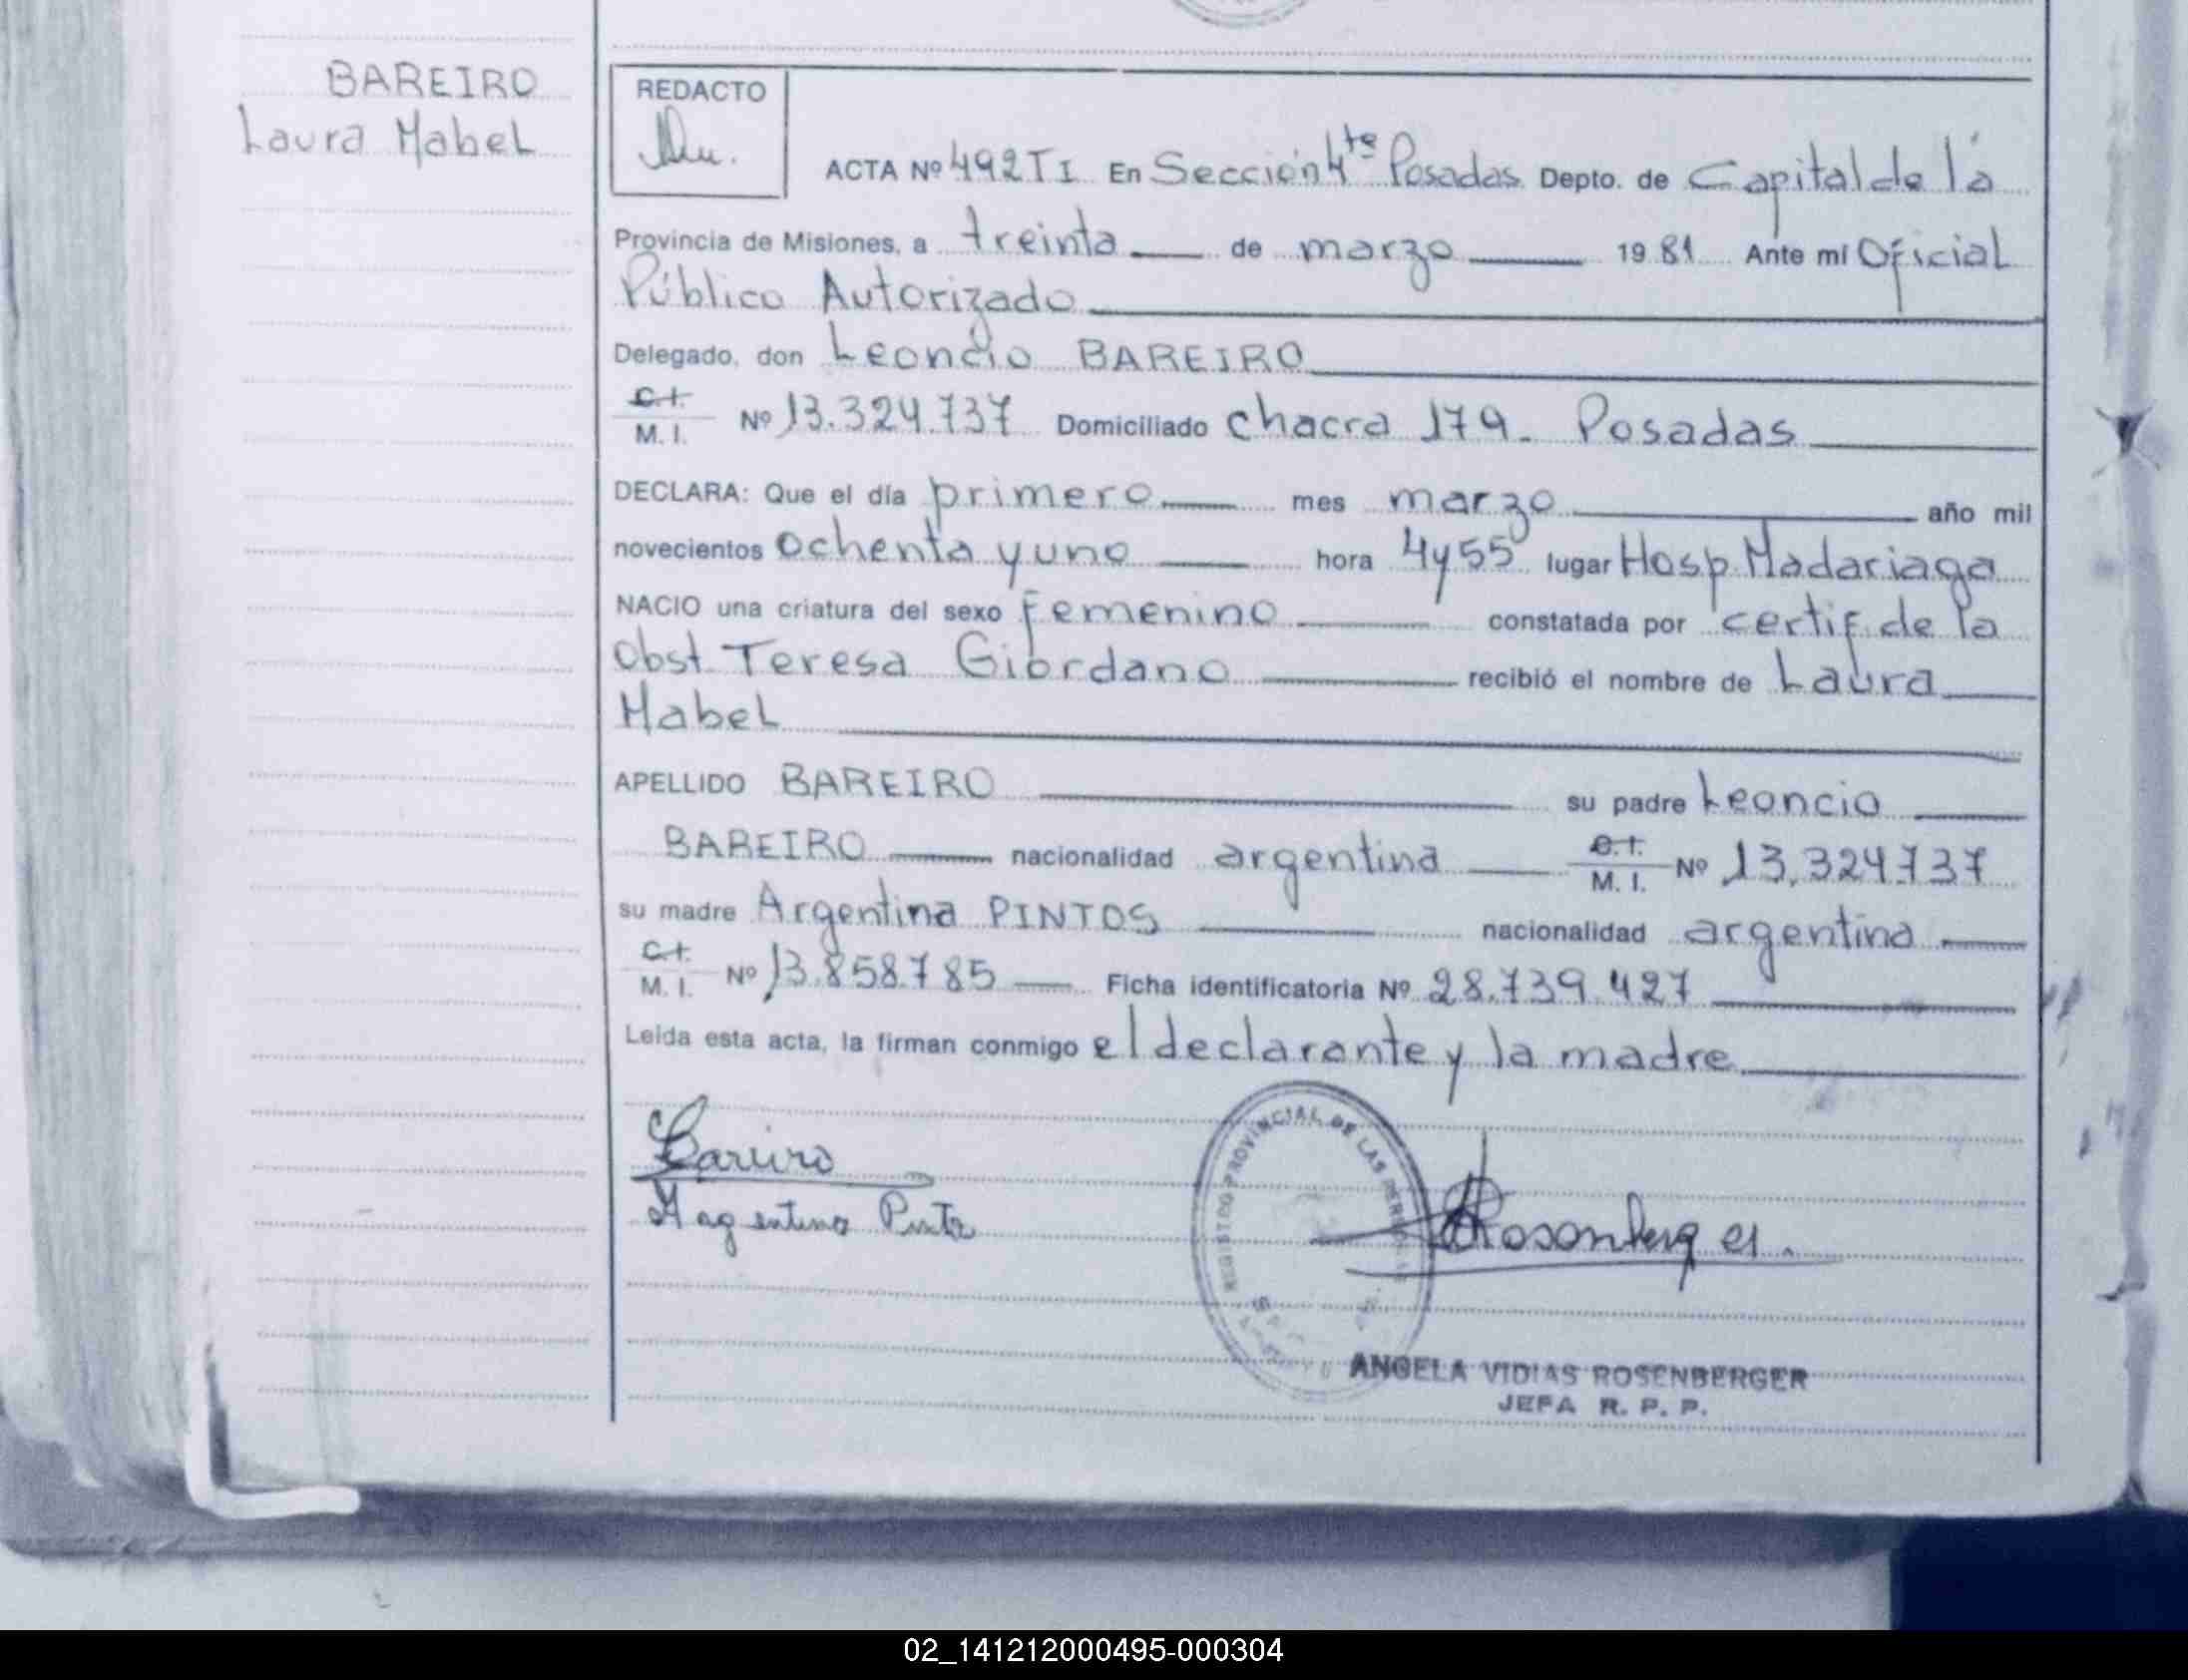 BAREIRO
Laura Mabel
REDACTO
ACTA Nº 492 T I En Sección 4ta Posadas Depto. de Capital de la
Provincia de Misiones, a treinta de marzo 1981 Ante mí Oficial
Público Autorizado
Delegado, don Leoncio BAREIRO
C.I.
M. I. Nº 13.324.737 Domiciliado chacra 179. Posadas
DECLARA: Que el día primero mes marzo año mil
novecientos ochenta y uno hora 4 y 55 lugar Hosp. Madariaga
NACIO una criatura del sexo femenino constatada por certif. de la
Obst. Teresa Giordano recibió el nombre de Laura
Mabel
APELLIDO BAREIRO su padre Leoncio
BAREIRO nacionalidad argentina C.I.
M. I. Nº 13.324.737
su madre Argentina PINTOS nacionalidad argentina
C.I.
M. I. Nº 13.858.785 Ficha identificatoria Nº 28.739.427
Leída esta acta, la firman conmigo el declarante y la madre
Bareiro
REGISTRO PROVINCIAL DE LAS PERSONAS
Rosenberger
ANGELA VIDIAS ROSENBERGER
JEFA R. P. P.
02_141212000495-000304